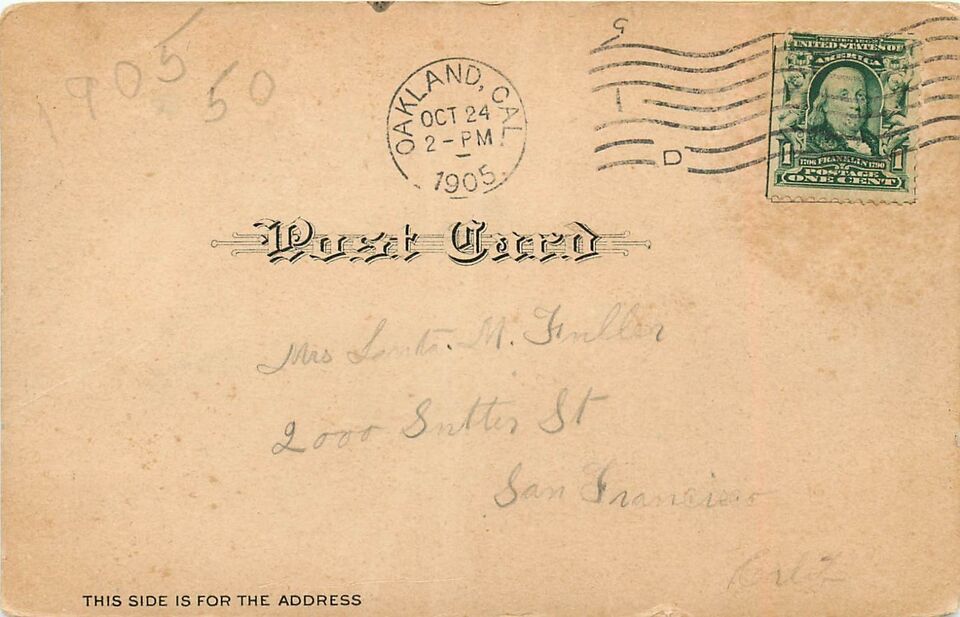 1905
50
OAKLAND, CAL.
OCT 24
2-PM
1905
D
SERIES 1902
UNITED STATES OF
AMERICA
1706 FRANKLIN 1790
1 POSTAGE 1
ONE CENT
Post Card
Mrs M. Fuller
2000 Sutter St
San Francisco
THIS SIDE IS FOR THE ADDRESS